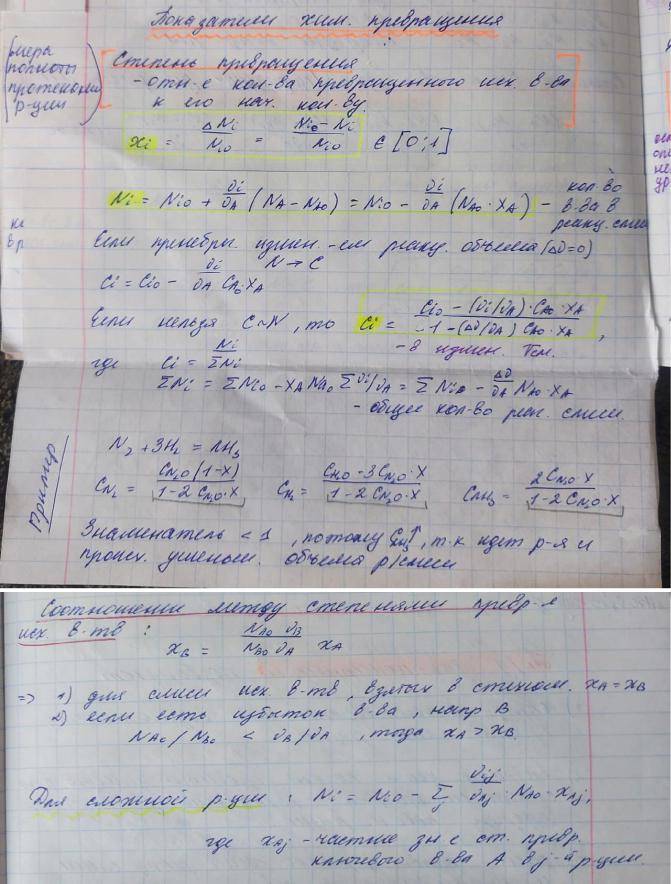 Показатели хим. превращения
(мера полноты протекания р-ции)
Степень превращения
- отн-е кол-ва превращенного исх. в-ва
к его нач. кол-ву
xi = ΔNi / Ni0 = (Ni0 - Ni) / Ni0 ∈ [0;1]
Ni = Ni0 + νi/νA (NA - NA0) = Ni0 - νi/νA (NA0 · XA) - кол-во
в-ва в
реакц. смеси
Если пренебр. измен-ем реакц. объема (Δν=0)
N → C
Ci = Ci0 - νi/νA CA0 XA
Если нельзя C~N, то Ci = (Ci0 - (νi/νA) · CA0 · XA) / (1 - (Δν/νA) CA0 · XA),
- в измен. Tсм.
где Ci = Ni / ΣNi
ΣNi = ΣNi0 - XA NA0 Σνi/νA = ΣNi0 - Δν/νA NA0 · XA
- общее кол-во реак. смеси.
Пример
N2 + 3H2 = NH3
CN2 = CN20 (1-X) / (1-2CN20·X) CH2 = (CH20 - 3CN20·X) / (1-2CN20·X) CNH3 = 2CN20·X / (1-2CN20·X)
Знаменатель < 1, потому CNH3↑, т.к идет р-я и
происх. уменьш. объема р/смеси
Соотношении между степенями превр-я
исх. в-тв :
xB = (NA0 νB / NB0 νA) xA
=> 1) для смеси исх. в-тв, взятых в стехиом. xA = xB
2) если есть избыток в-ва, напр B
NA0/NB0 < νB/νA, тогда xA > xB.
Для сложной р-ции : Ni = Ni0 - Σj νij/νAj · NA0 · xAj,
где xAj - частные зн-е ст. превр.
ключевого в-ва A в j-й р-ции.